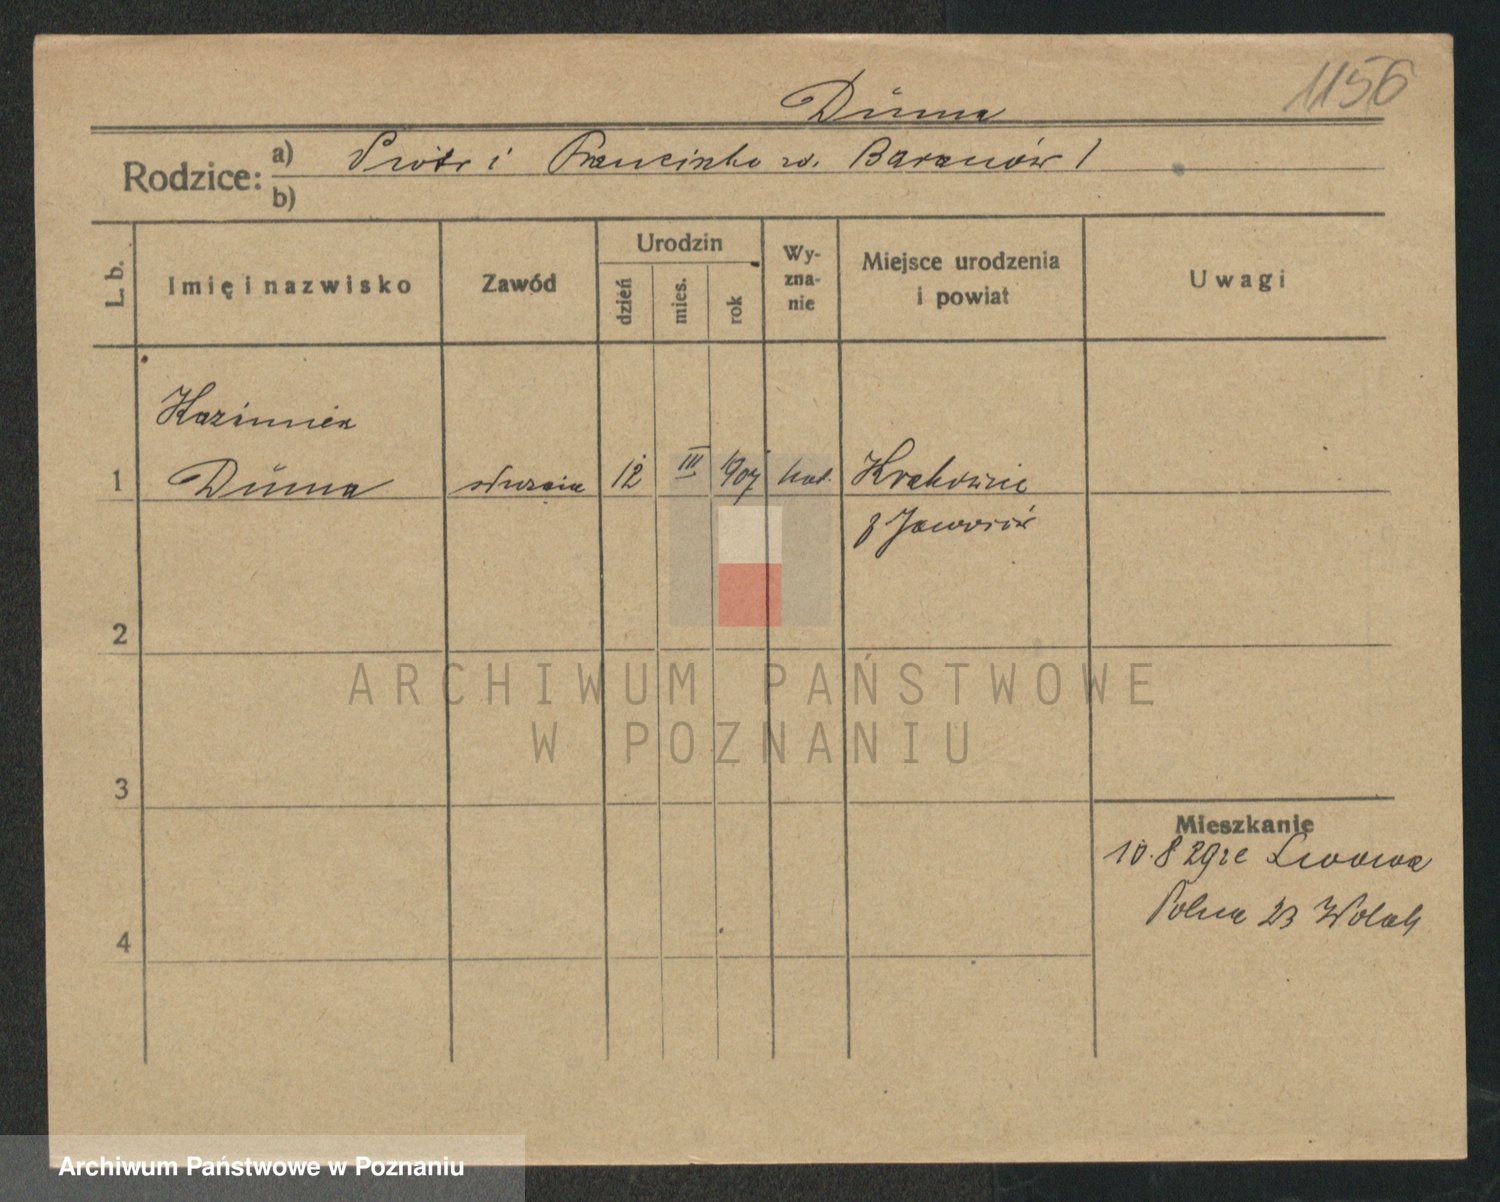 1156
Duma
Rodzice: a) Piotr i Franciszka zd. Baranów 1
b)
L. b. Imię i nazwisko Zawód Urodzin dzień mies. rok Wy-zna-nie Miejsce urodzenia i powiat Uwagi
Kazimierz
1 Duma 12 III 1907 kat. Krakowiec
p Jaworów
2
3
4
Mieszkanie
10.8 29 ze Lwowa
Polna 23 Wolak
ARCHIWUM PAŃSTWOWE
W POZNANIU
Archiwum Państwowe w Poznaniu